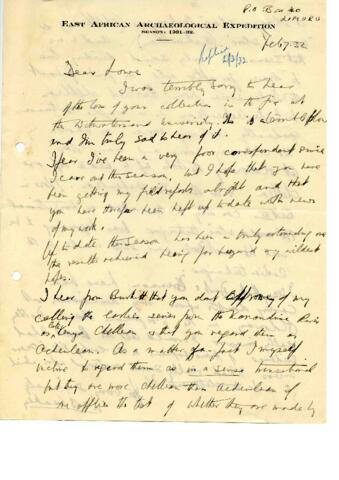 P.O. Box
EAST AFRICAN ARCHAEOLOGICAL EXPEDITION
SEASON: 1931-32.
Feb 7. 32
2/3/32
Dear Lowe
I was terribly sorry to hear
of the loss of your collection in the fire at
the Witwatersrand University. It is a terrible blow
and I'm truly sad to hear of it.
I fear I've been a very poor correspondent since
I came out this season, and I hope that you have
been getting my field reports alright and that
you have thus far been kept up to date with news
of my work.
Up to date this season has been a truly astounding one
the results achieved being far beyond my wildest
hopes.
I hear from Burkitt that you don't approve of my
calling the earlier series from the Kenya
Chellean & that you regard them as
Acheulean. As a matter of fact I myself
incline to regard them as in a sense transitional
but they are more chellean than acheulean if
one applies the test of whether they are made by